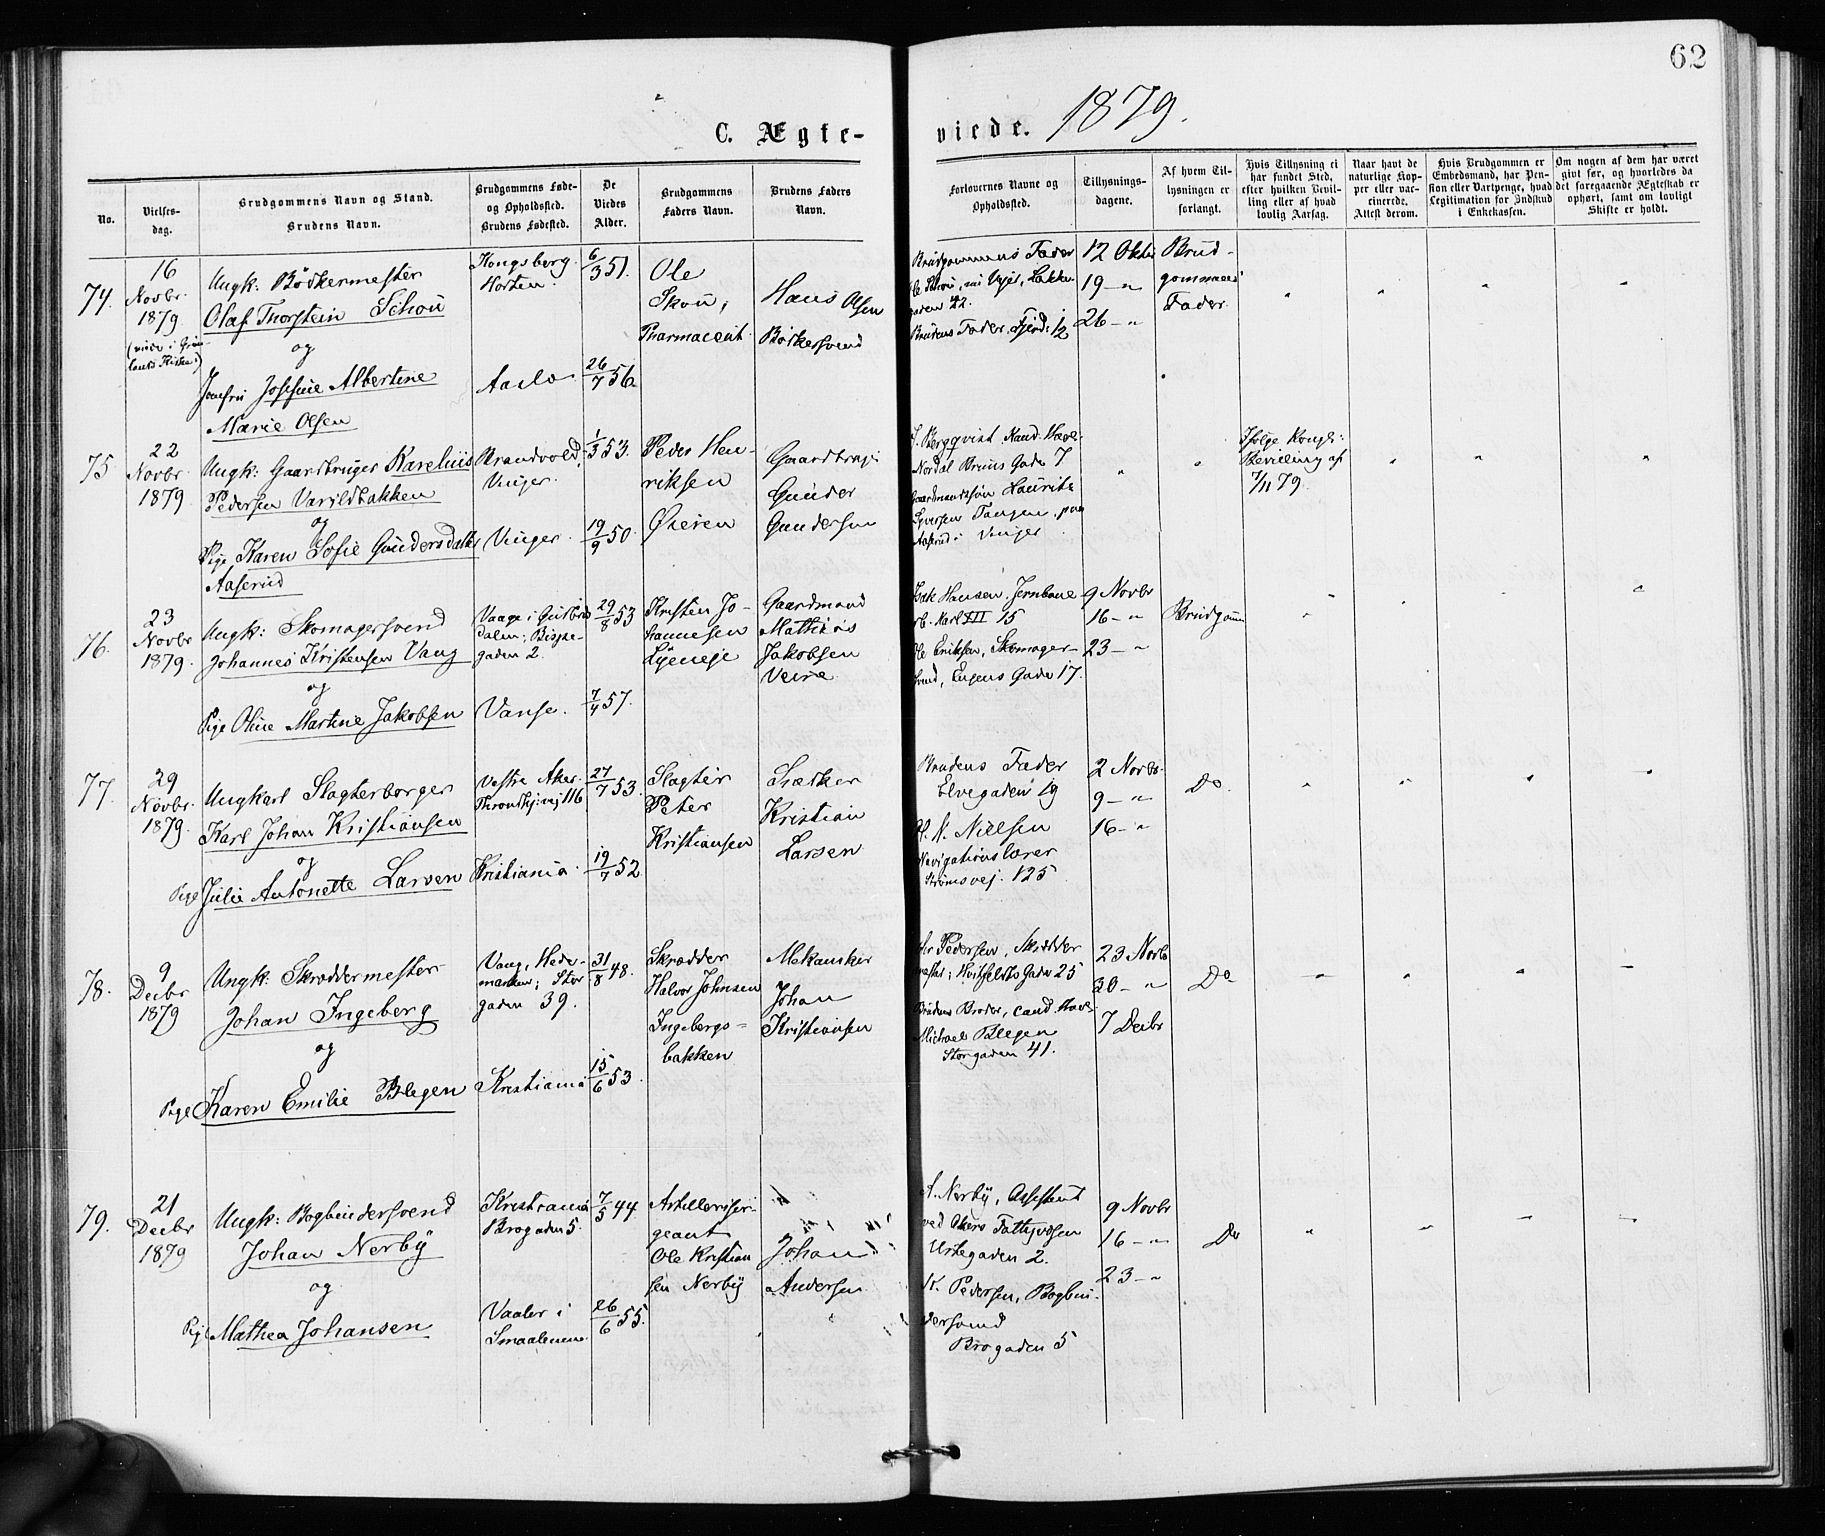 62
C. Ægte-
viede. 1879.
No.
Vielses-
dag.
Brudgommens Navn og Stand.
Brudens Navn.
Brudgommens Føde-
og Opholdssted.
Brudens Fødested.
De
Viedes
Alder.
Brudgommens
Faders Navn.
Brudens Faders
Navn.
Forlovernes Navne og
Opholdssted.
Tillysnings-
dagene.
Af hvem Til-
lysningen er
forlangt.
Hvis Tillysning ei
har fundet Sted,
efter hvilken Bevil-
ling eller af hvad
lovlig Aarsag.
Naar havt de
naturlige Kop-
per eller vac-
cinerede.
Attest derom.
Hvis Brudgommen er
Embedsmand, har Pen-
sion eller Vartpenge, hvad
Legitimation for Indskud
i Enkekassen.
Om nogen af dem har været
gift før, og hvorledes da
det foregaaende Ægteskab er
ophørt, samt om lovligt
Skifte er holdt.
74.
16
Novbr.
1879
Ungk: Bødkermester
Olaf Thorstein Schou
og
Jomfru Josefine Albertine
Marie Olsen
Kongsberg.
Horten.
Aaslo
6/3 51.
26/7 56
Ole
Skou,
Pharmaceut
Hans Olsen
Bødkersvend
Brudgommens Fader
Brudens Fader
12 Oktr
19 — "
26 — "
Brud-
gommens
Fader
75
22
Novbr
1879
Ungk: Gaardbruger Karelius
Pedersen Varildbakken
og
Pige Karen Sofie Gundersdatter
Aaserud
Brandvold,
Vinger.
Vinger.
1/3 53.
19/9 50.
Peder Hen-
riksen
Øieren
Gaardbrug:
Gunder
Gundersen
Bergqvist
Nordal Bruns Gade 7
Gaardmandssøn Laurits
Syversen Tangen, paa
Aaserud i Vinger
Ifølge Kongl:
Bevilling af
7/11 79.
76.
23
Novbr
1879.
Ungk: Skomagersvend
Johannes Kristensen Vang
og
Pige Oline Martine Jakobsen
Vaage i Gudbrands
dalen; Bispe-
gaden 2.
Vanse.
29/8 53
7/4 57.
Kristen Jo-
hannesen
Gaardmand
Mathias
Jakobsen
Hansen, Jernbane
Karl XII 15
Ole Eriksen, Skomager-
svend, Eugens Gade 17.
9 Novbr
16 — "
23 — "
Brudgom
77.
29
Novbr.
1879.
Ungkarl Slagterborger
Karl Johan Kristiansen
og
Pige Julie Antonette Larsen
Vestre Aker
Throndhjvej 116
Kristiania.
27/7 53.
19/7 52
Slagter
Peter
Kristiansen
Kristian
Larsen
Brudens Fader
Elvegaden 19
N. Nielsen
Navigationslærer
Strømsvej. 125
2 Novbr.
9 — "
16 — "
Do.
78.
9
Decbr
1879
Ungk: Skræddermester
Johan Ingeberg
og
Pige Karen Emilie Blegen
Vang, Hede-
marken; Stor
gaden 39.
Kristiania
31/8 48.
15/6 53.
Skrædder
Halvor Johnsen
Ingebergs-
bakken
Mekaniker
Johan
Kristiansen
Pedersen, Skrædder
mester; Hvitfeldts Gade 25
Brudens Broder, cand.
Michael Blegen
Storgaden 41.
23 Novb
30 — "
7 Decbr
Do
79.
21
Decbr
1879
Ungk: Bogbindersvend
Johan Nerby
og
Pige Mathea Johansen
Kristiania
Brogaden 5.
Vaaler i
Smaalenene.
7/5 44.
26/6 55.
Artilleriser-
geant
Ole Kristian
sen Nerby
Johan
Andersen
A. Nerby, Assistent
ved Akers Fattigvæsen
Urtegaden 2.
N. Pedersen, Bogbin-
dersvend
Brogaden 5
9 Novbr
16 — "
23 — "
Do